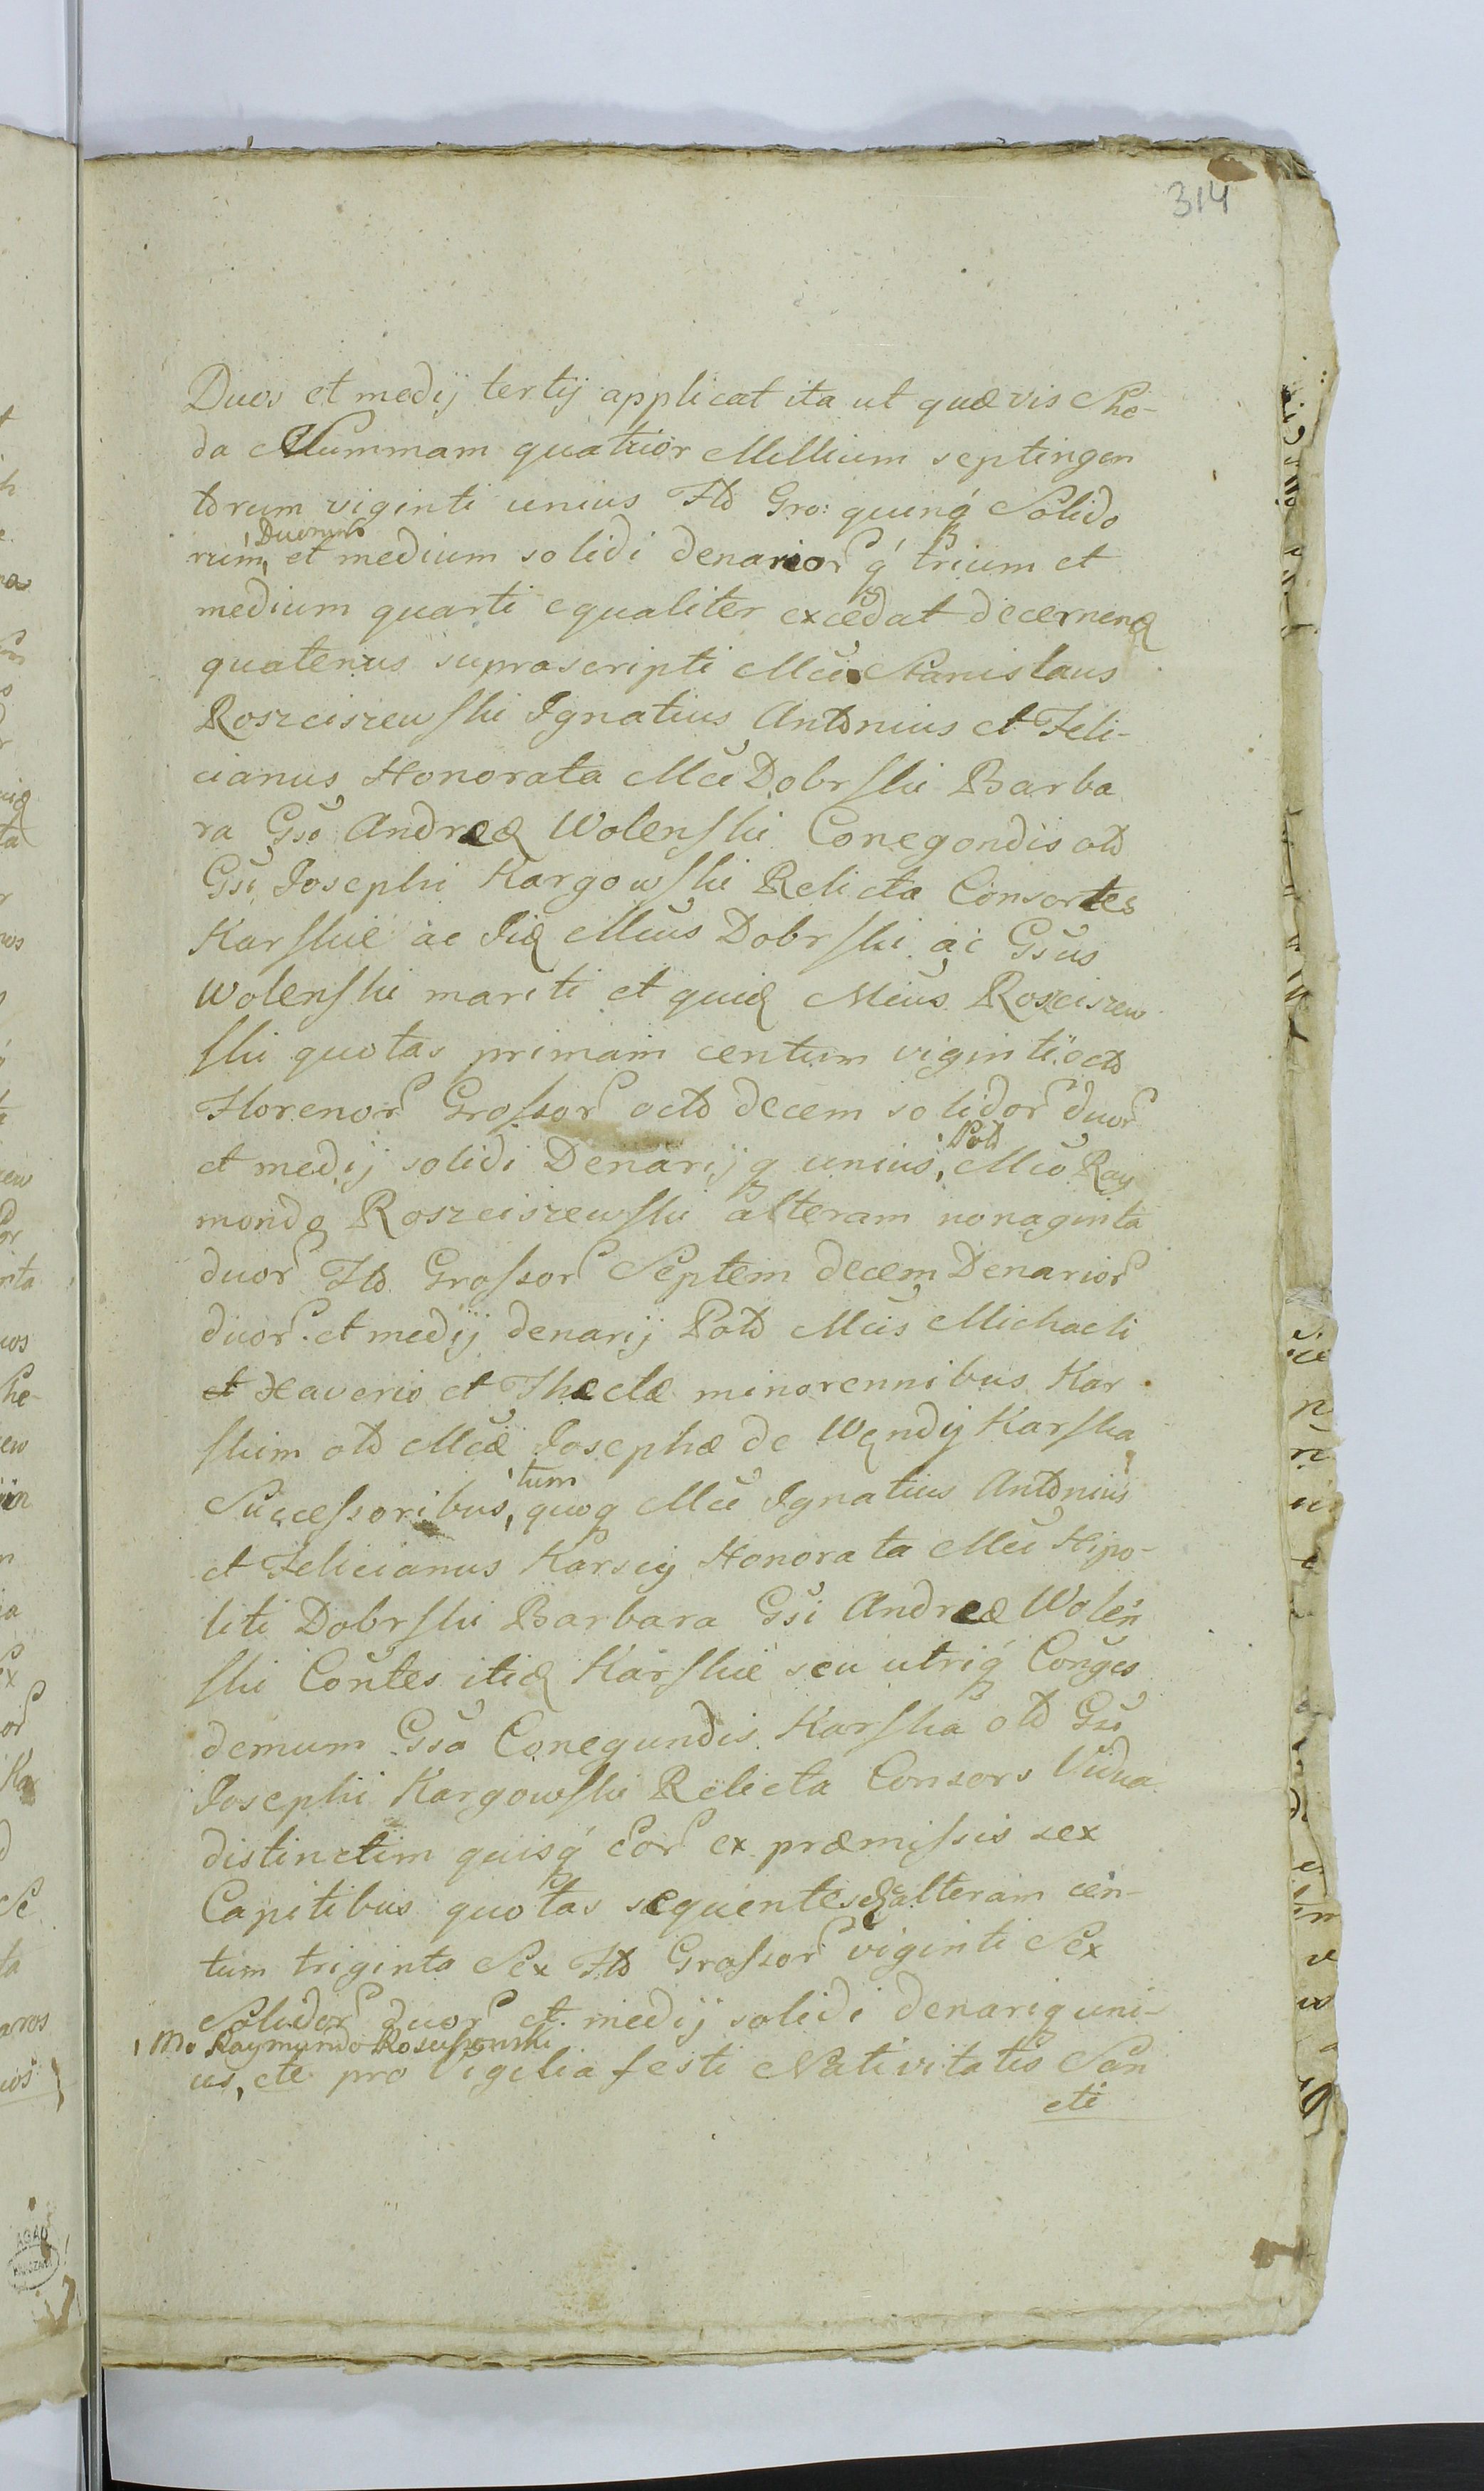 314
Duos et medij tertij applicat ita ut quævis Sche-
da Summam quatuor Millium septingen
torum viginti unius Flo Gro: quinq́ Solido
rum, Duorum et medium solidi denarior q́ trium et
medium quarti equaliter excedat decernend
quatenus suprascripti Mci Stanislaus
Roszciszewski Ignatius Antonius et Feli-
cianus Honorata Mci Dobrski Barba
ra Gsi Andreæ Wolenski Conegondis olo
Gsi Josephi Kargowski Relicta Consortes
Karskie ac Iid Mcus Dobrski ac Gsus
Wolenski mariti et quid Mcus Roszciszew
ski quotas primam centum viginti octo
Florenor Grossor octo decem solidor duor
et medij solidi Denarij q unius, Poto Mco Ray
mondo Roszciszewski alteram nonaginta
duor Flo Grossor Septem decem Denarior
duor et medij denarij Poto Mcis Michaeli
et Xaverio et Theclæ minorennibus Kar
skim olo Mcæ Josephæ de Wendy Karska
Successoribus, tum quoq Mci Ignatius Antonius
et Felicianus Karscy Honorata Mci Hipo-
liti Dobrski Barbara Gsi Andreæ Wolen
ski Contes itid Karskie seu utriq́ Conges
demum Gsa Conegundis Karska olo Gsi
Josephi Kargowski Relicta Consors Vidua
distinctim quisq́ eor ex præmissis sex
Capitibus quotas sequentes alteram cen-
tum triginta Sex Flo Grossor viginti Sex
Solidor duor et medij solidi denarij q uni-
us, Mo Raymundo Rosciszewski cte pro Vigilia festi Nativitatis San
cti
AGAD